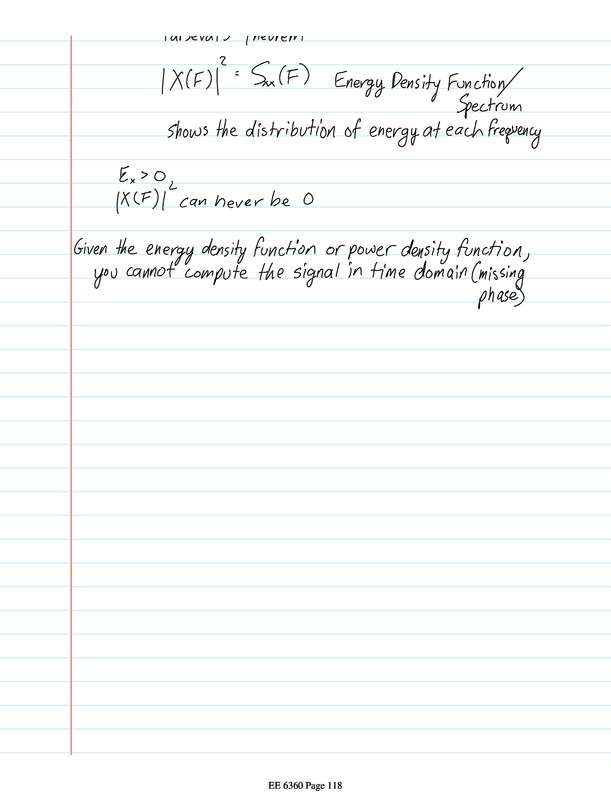 Parseval's Theorem
|X(F)|² = Sₓₓ(F) Energy Density Function/
Spectrum
shows the distribution of energy at each frequency
Eₓ > 0
|X(F)|² can never be 0
Given the energy density function or power density function,
you cannot compute the signal in time domain (missing
phase)
EE 6360 Page 118